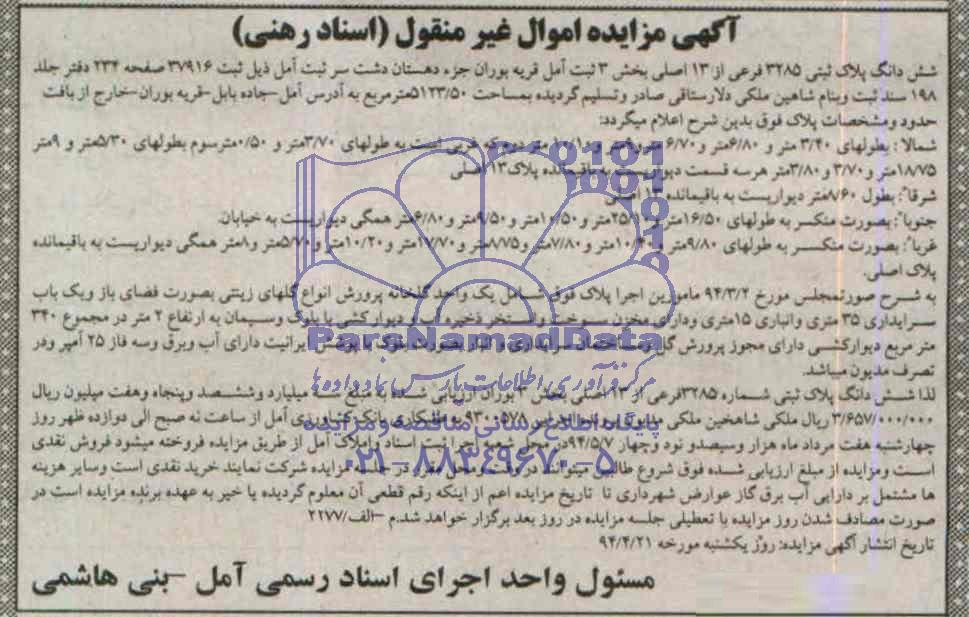 آگهی مزایده اموال غیر منقول (اسناد رهنی)
شش دانگ پلاک ثبتی ۳۲۸۵ فرعی از ۱۳ اصلی بخش ۳ ثبت آمل قریه بوران جزء دهستان دشت سر ثبت آمل ذیل ثبت ۳۷۹۱۶ صفحه ۲۳۴ دفتر جلد
۱۹۸ سند ثبت وبنام شاهین ملکی دلارستاقی صادر وتسلیم گردیده بمساحت ۵۱۲۳/۵۰مترمربع به آدرس آمل-جاده بابل-قریه بوران-خارج از بافت
حدود ومشخصات پلاک فوق بدین شرح اعلام میگردد:
شمالا : بطولهای ۳/۴۰ متر و ۶/۸۰متر و ۶/۷۰ متر و دوم که غربی است به طولهای ۳/۷۰متر و ۰/۵۰مترسوم بطولهای ۵/۳۰متر و ۹متر
۱۸/۷۵متر و ۳/۷۰ و ۳/۸۰متر هرسه قسمت دیواریست به باقیمانده پلاک ۱۳ اصلی
شرقا: بطول ۸/۶۰متر دیواریست به باقیمانده ۱۳ اصلی
جنوبا: بصورت منکسر به طولهای ۱۶/۵۰متر و ۲۵/۱۰متر و ۱۰/۵۰متر و ۹/۵۰متر و ۶/۸۰متر همگی دیواریست به خیابان
غربا: بصورت منکسر به طولهای ۹/۸۰متر و ۷/۸۰متر و ۸/۷۵متر و ۱۷/۷۰متر و ۱۰/۲۰متر و ۵/۷۰متر و ۸متر همگی دیواریست به باقیمانده
پلاک اصلی.
به شرح صورتمجلس مورخ ۹۴/۳/۲ مامورین اجرا پلاک فوق شامل یک واحد گلخانه پرورش انواع گلهای زینتی بصورت فضای باز ویک باب
سرایداری ۳۵ متری وانباری ۱۵متری ودارای مخزن سوخت واستخر ذخیره آب و دیوارکشی با بلوک وسیمان به ارتفاع ۲ متر در مجموع ۳۴۰
متر مربع دیوارکشی دارای مجوز پرورش گل سرایداری و انبار بصورت بلوک با پوشش ایرانیت دارای آب وبرق وسه فاز ۲۵ آمپر ودر
تصرف مدیون میباشد.
لذا شش دانگ پلاک ثبتی شماره ۳۲۸۵فرعی از ۱۳ اصلی بخش ۳ بوران ارزیابی شده به مبلغ سه میلیارد وششصد وپنجاه وهفت میلیون ریال
۳/۶۵۷/۰۰۰/۰۰۰ ریال ملکی شاهین ملکی ۹۳۰۰۵۷۸ به طلبکاری بانک کشاورزی آمل از ساعت نه صبح الی دوازده ظهر روز
چهارشنبه هفت مرداد ماه هزار وسیصدو نود وچهار ۹۴/۵/۷در محل شعبه اجرا ثبت اسناد واملاک آمل از طریق مزایده فروخته میشود فروش نقدی
است ومزایده از مبلغ ارزیابی شده فوق شروع طالبین میتوانند در وقت و محل مقرر در جلسه مزایده شرکت نمایند خرید نقدی است وسایر هزینه
ها مشتمل بر دارایی آب برق گاز عوارض شهرداری تا تاریخ مزایده اعم از اینکه رقم قطعی آن معلوم گردیده یا خیر به عهده برنده مزایده است در
صورت مصادف شدن روز مزایده با تعطیلی جلسه مزایده در روز بعد برگزار خواهد شد.م -الف/۲۲۷۷
تاریخ انتشار آگهی مزایده: روز یکشنبه مورخه ۹۴/۴/۲۱
مسئول واحد اجرای اسناد رسمی آمل -بنی هاشمی
ParsNamadData
مرکز فرآوری اطلاعات پارس نماد داده ها
پایگاه اطلاع رسانی مناقصه و مزایده
۰۲۱-۸۸۳۴۹۶۷۰-۵